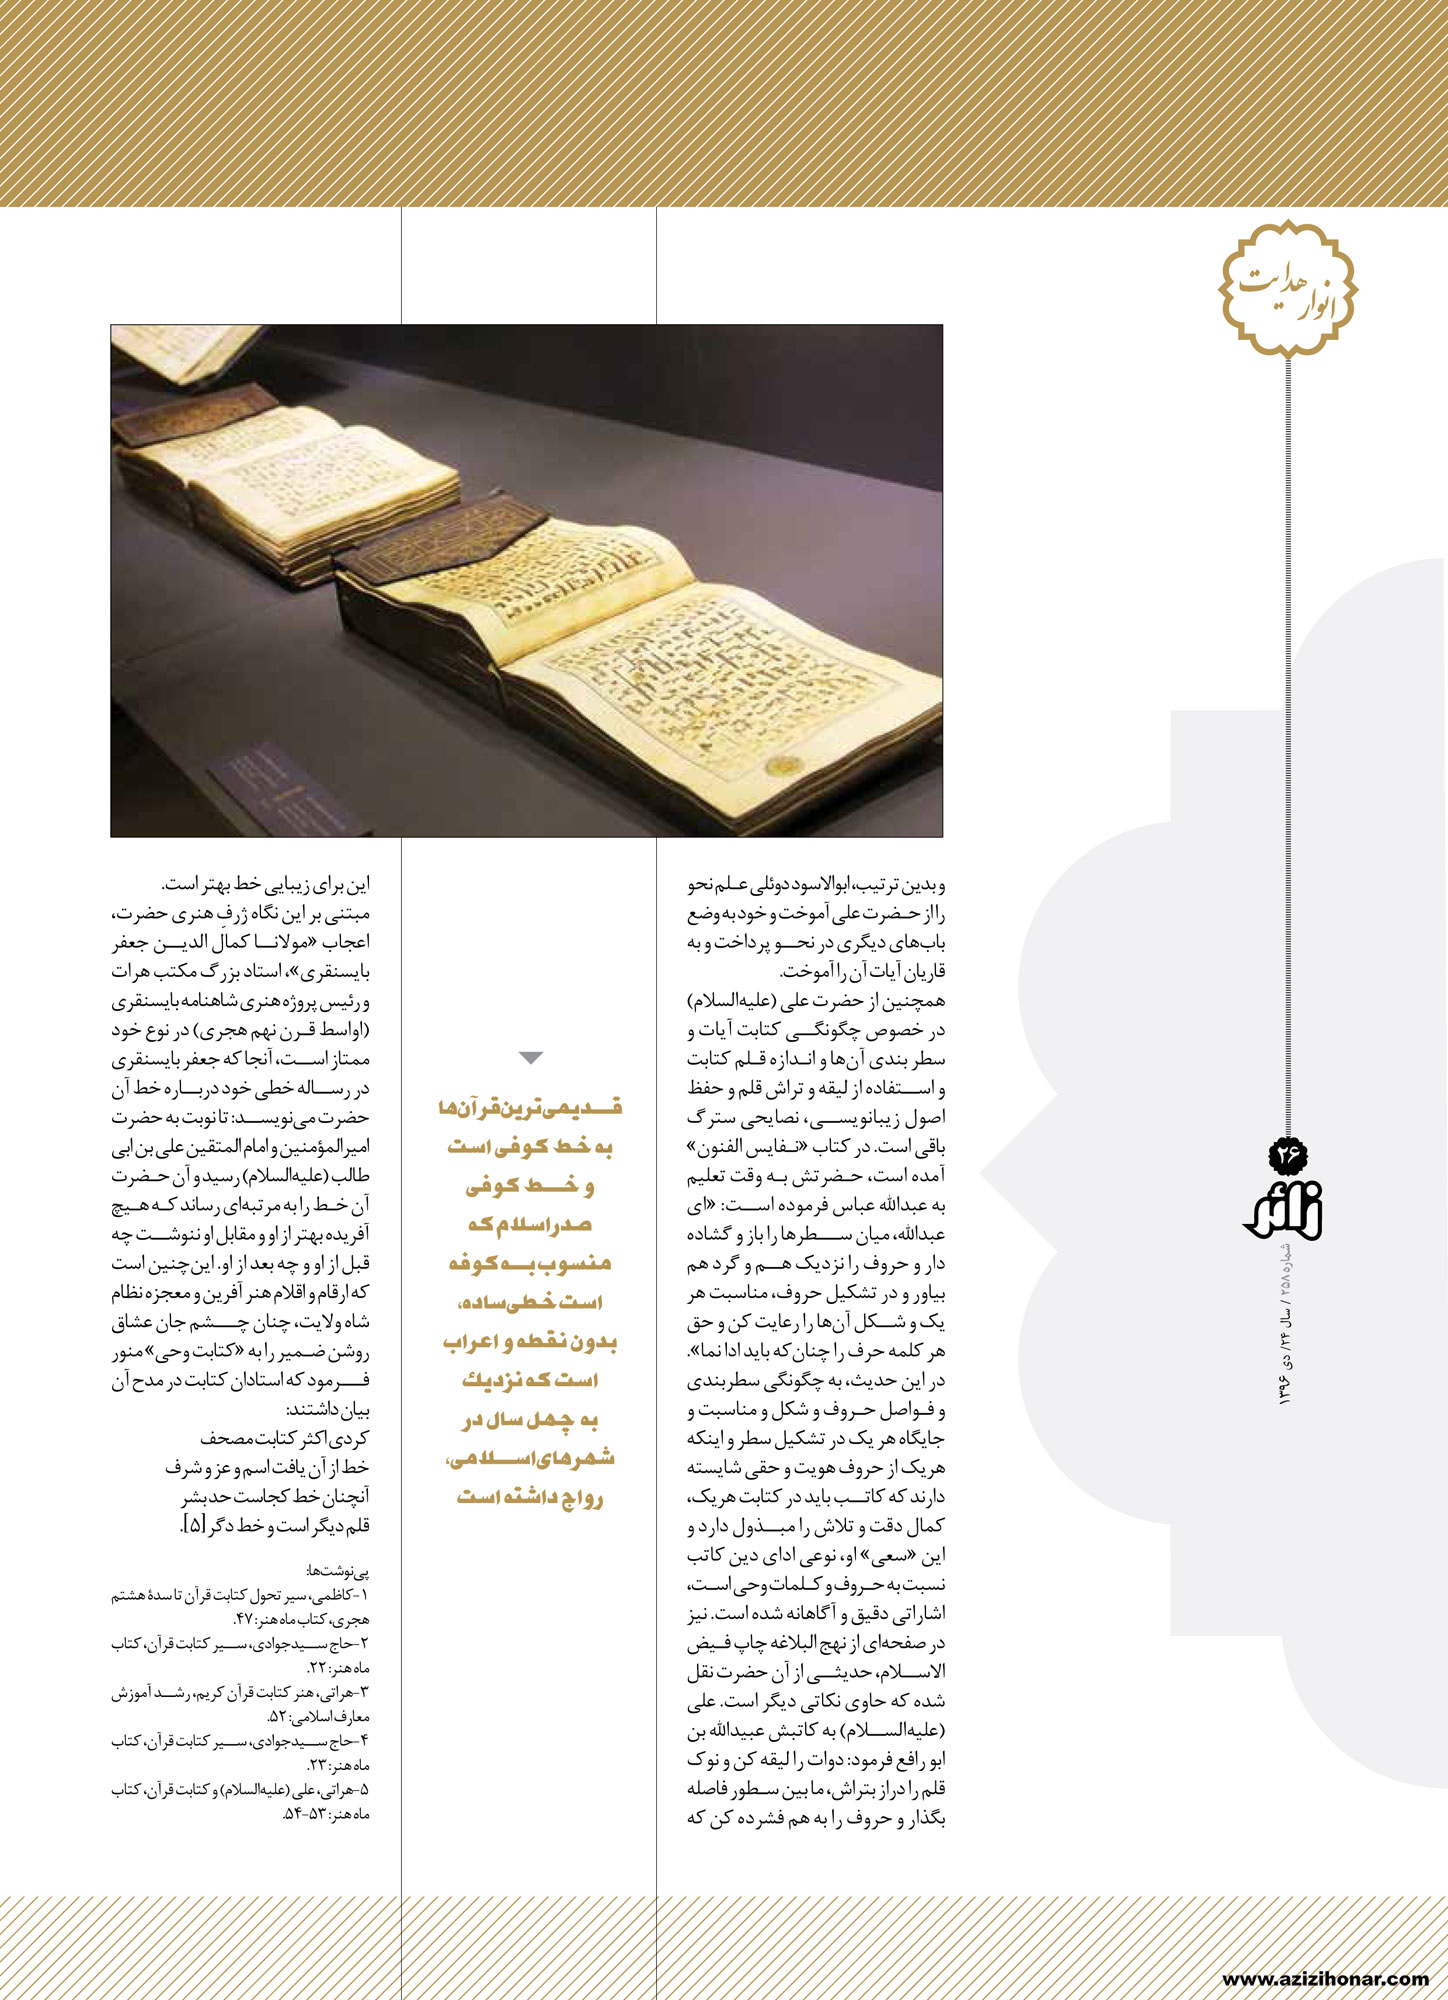 انوار هدایت
و بدین ترتیب، ابوالاسود دوئلی علم نحو
را از حضرت علی آموخت و خود به وضع
باب‌های دیگری در نحو پرداخت و به
قاریان آیات آن را آموخت.
همچنین از حضرت علی (علیه‌السلام)
در خصوص چگونگی کتابت آیات و
سطر بندی آن‌ها و اندازه قلم کتابت
و استفاده از لیقه و تراش قلم و حفظ
اصول زیبانویسی، نصایحی سترگ
باقی است. در کتاب «نفایس الفنون»
آمده است، حضرتش به وقت تعلیم
به عبدالله عباس فرموده است: «ای
عبدالله، میان سطرها را باز و گشاده
دار و حروف را نزدیک هم و گرد هم
بیاور و در تشکیل حروف، مناسبت هر
یک و شکل آن‌ها را رعایت کن و حق
هر کلمه حرف را چنان‌که باید ادا نما».
در این حدیث، به چگونگی سطربندی
و فواصل حروف و شکل و مناسبت و
جایگاه هر یک در تشکیل سطر و اینکه
هریک از حروف هویت و حقی شایسته
دارند که کاتب باید در کتابت هریک،
کمال دقت و تلاش را مبذول دارد و
این «سعی» او، نوعی ادای دین کاتب
نسبت به حروف و کلمات وحی است،
اشاراتی دقیق و آگاهانه شده است. نیز
در صفحه‌ای از نهج البلاغه چاپ فیض
الاسلام، حدیثی از آن حضرت نقل
شده که حاوی نکاتی دیگر است. علی
(علیه‌السلام) به کاتبش عبیدالله بن
ابو رافع فرمود: دوات را لیقه کن و نوک
قلم را دراز بتراش، مابین سطور فاصله
بگذار و حروف را به هم فشرده کن که
قدیمی‌ترین قرآن‌ها
به خط کوفی است
و خط کوفی
صدر اسلام که
منسوب به کوفه
است خطی ساده،
بدون نقطه و اعراب
است که نزدیک
به چهل سال در
شهرهای اسلامی،
رواج داشته است
این برای زیبایی خط بهتر است.
مبتنی بر این نگاه ژرفِ هنری حضرت،
اعجاب «مولانا کمال الدین جعفر
بایسنقری»، استاد بزرگ مکتب هرات
و رئیس پروژه هنری شاهنامه بایسنقری
(اواسط قرن نهم هجری) در نوع خود
ممتاز است، آنجا که جعفر بایسنقری
در رساله خطی خود درباره خط آن
حضرت می‌نویسد: تا نوبت به حضرت
امیرالمؤمنین و امام المتقین علی بن ابی
طالب (علیه‌السلام) رسید و آن حضرت
آن خط را به مرتبه‌ای رساند که هیچ
آفریده بهتر از او و مقابل او ننوشت چه
قبل از او و چه بعد از او. این‌چنین است
که ارقام و اقلام هنر آفرین و معجزه نظام
شاه ولایت، چنان چشم جان عشاق
روشن ضمیر را به «کتابت وحی» منور
فرمود که استادان کتابت در مدح آن
بیان داشتند:
کردی اکثر کتابت مصحف
خط از آن یافت اسم و عز و شرف
آنچنان خط کجاست حد بشر
قلم دیگر است و خط دگر [۵].
پی‌نوشت‌ها:
۱-کاظمی، سیر تحول کتابت قرآن تا سدهٔ هشتم
هجری، کتاب ماه هنر: ۴۷.
۲-حاج سیدجوادی، سیر کتابت قرآن، کتاب
ماه هنر: ۲۲.
۳-هراتی، هنر کتابت قرآن کریم، رشد آموزش
معارف اسلامی: ۵۲.
۴-حاج سیدجوادی، سیر کتابت قرآن، کتاب
ماه هنر: ۲۳.
۵-هراتی، علی (علیه‌السلام) و کتابت قرآن، کتاب
ماه هنر: ۵۳-۵۴.
۲۶
زائر
شماره ۲۵۸ / سال ۲۴ / دی ۱۳۹۶
www.azizihonar.com